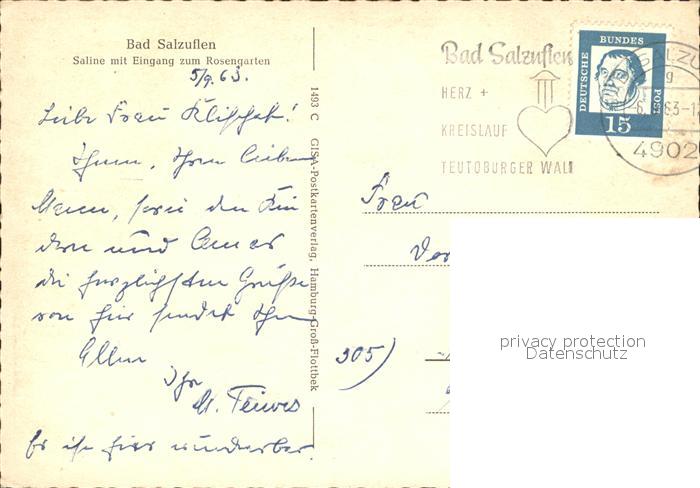 Bad Salzuflen
Saline mit Eingang zum Rosengarten
5/9.63.
Liebe Frau
Ihnen, Ihren lieben
Mann, sowie den Kin
dern und
die herzlichsten Grüße
von hier sendet Ihnen
Allen
Ihr
Es ist hier wunderbar.
1493 C GISA-Postkartenverlag, Hamburg-Groß-Flottbek
Bad Salzuflen
HERZ +
KREISLAUF
TEUTOBURGER WALD
DEUTSCHE BUNDES POST
15
4902
Frau
305)
privacy protection
Datenschutz